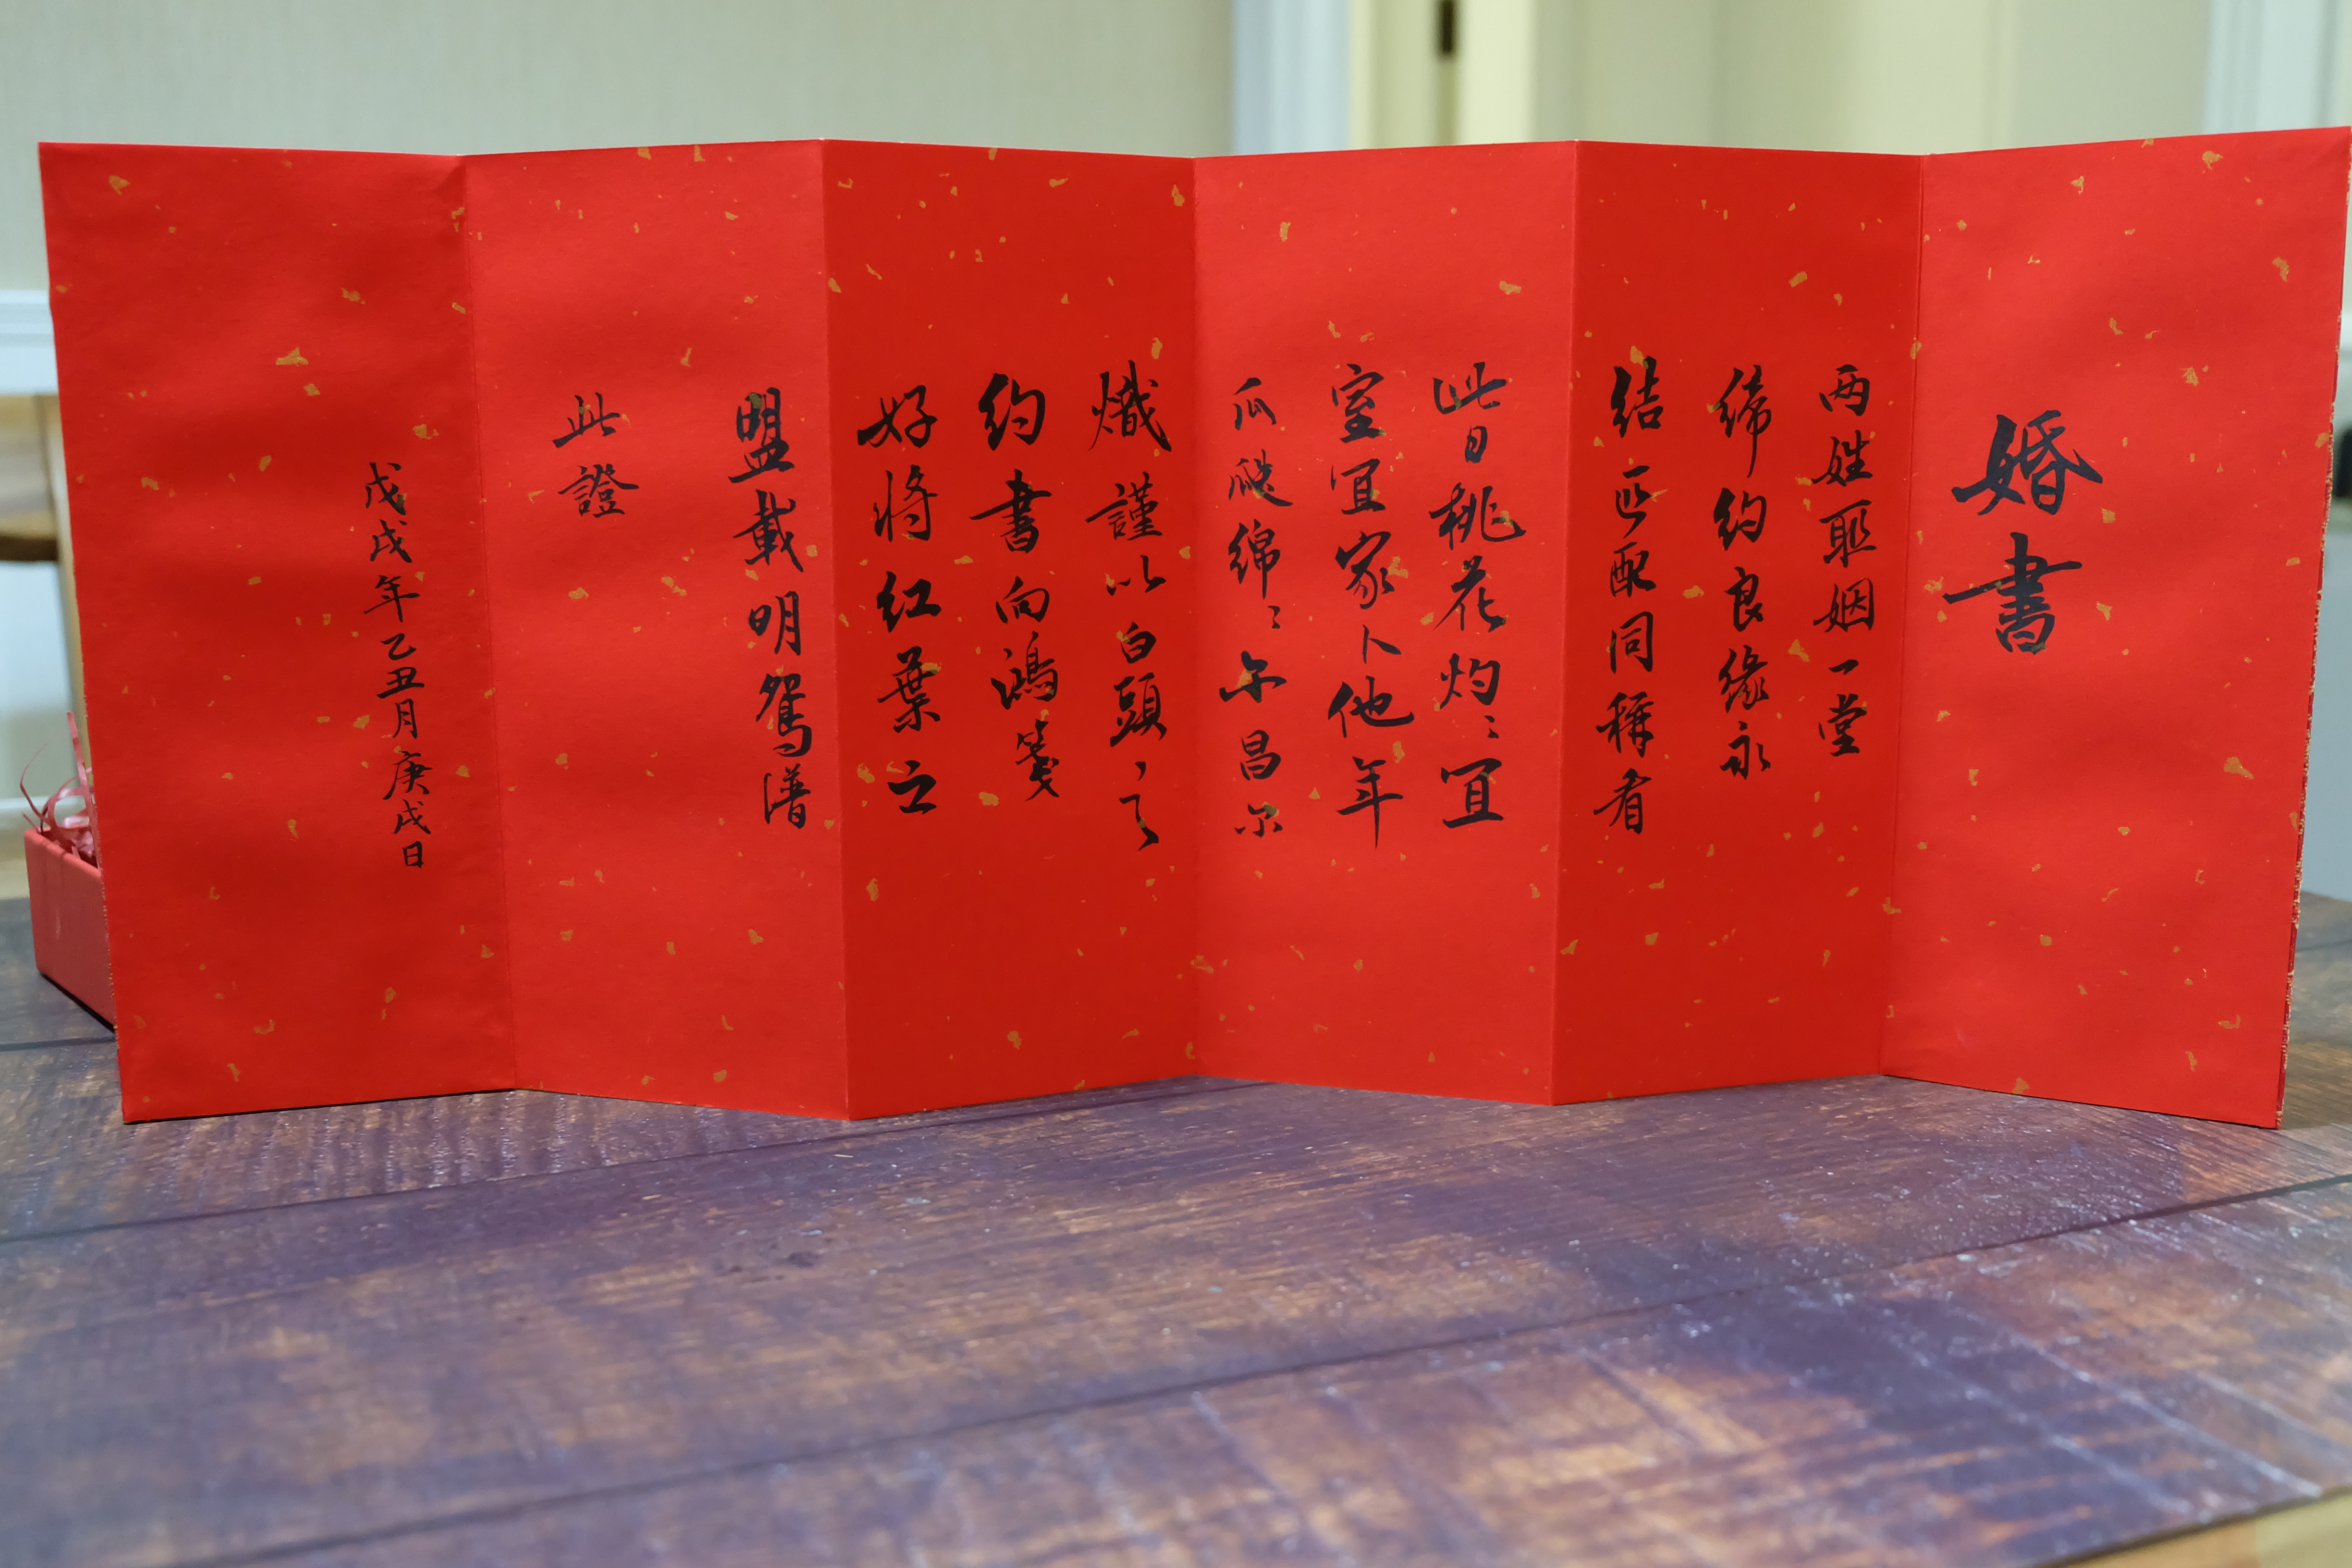 婚書
两姓联姻一堂
締約良緣永
結匹配同稱看
此日桃花灼〻宜
室宜家卜他年
瓜瓞綿〻尔昌尔
熾謹以白頭之
約書向鴻箋
好將紅葉之
盟載明鴛譜
此證
戊戌年乙丑月庚戌日